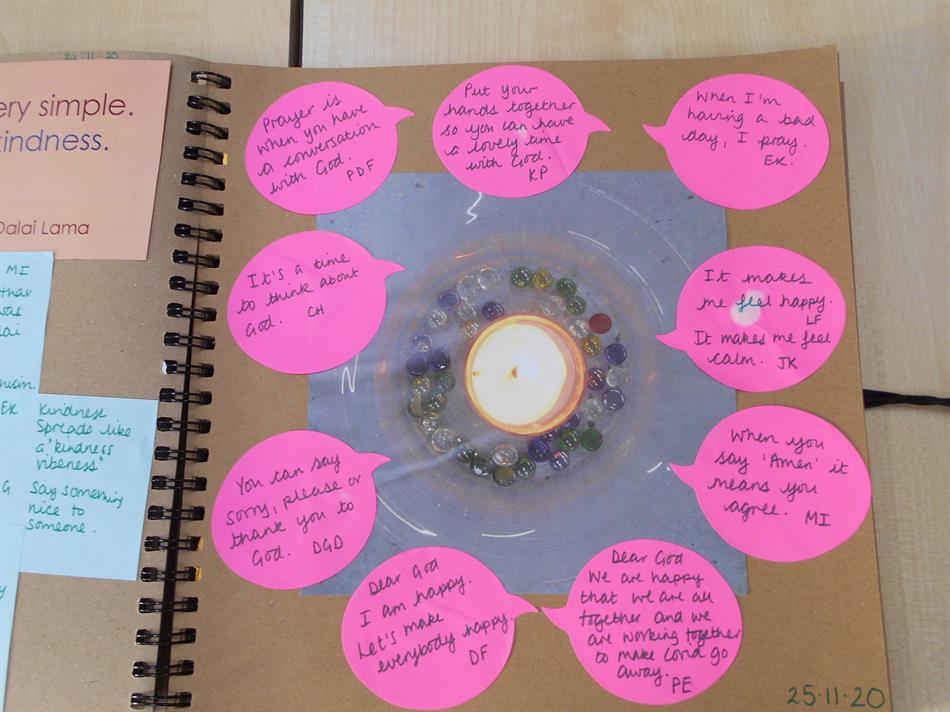 24.11.20
ery simple.
kindness.
Dalai Lama
MI
that
was
lai
EK
Kindness
Spreads like
a "kindness
vibeness"
G
Say something
nice to
someone.
Prayer is
when you have
a conversation
with God.
PDF
Put your
hands together
so you can have
a lovely time
with God.
KP
When I'm
having a bad
day, I pray.
EK.
It's a time
to think about
God. CH
It makes
me feel happy.
LF
It makes me feel
calm. JK
You can say
sorry, please or
thank you to
God. DGD
When you
say 'Amen' it
means you
agree. MI
Dear God
I am happy.
Let's make
everybody happy.
DF
Dear God
We are happy
that we are all
together and we
are working together
to make Covid go
away.
PE
25.11.20